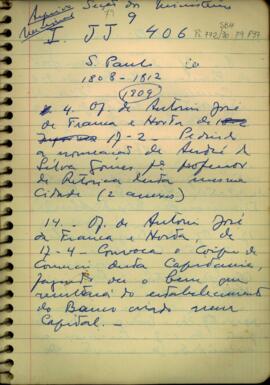 Arquivo Nacional
Seção dos Ministérios
9
I JJ 406
SBH
Pi 772/30 P9 P97
S. Paulo
1808 - 1812
(1809)
4. Of. de Antonio José
de Franca e Horta de
17-2- Pedindo
a nomeação de André da
Silva Gomes pa professor
de Retórica desta mesma
Cidade (2 anexos)
14 - Of. de Antonio José
de Franca e Horta, de
17-4- Convoca o Corpo de
Comercio desta Capitania,
fazendo ver o bem que
resultaria do estabelecimento
do Banco criado nessa
Capital. —